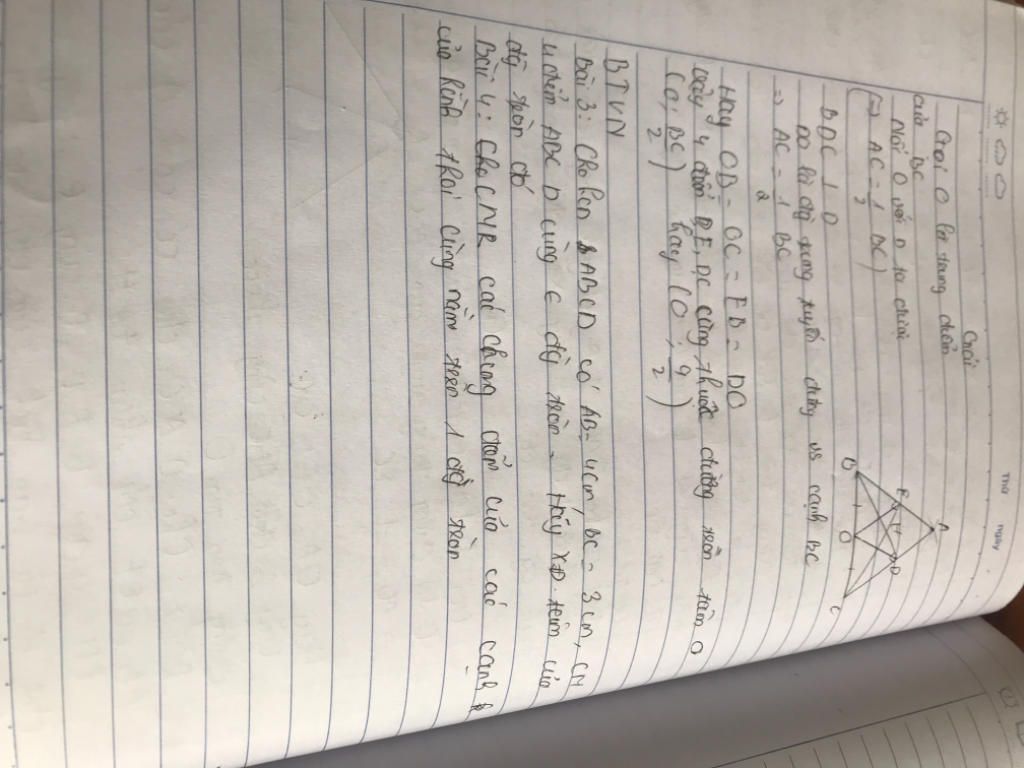 Thứ ngày
Giải
Gọi O là trung điểm
của BC
Nối O với D ta được
(=> AC = 1/2 BC)
BDC ⊥ D
DO là đg trung tuyến ứng vs cạnh BC
=> AC = 1/2 BC
Hay OB = OC = EB = DO
Vậy 4 điểm BE, DC cùng thuộc đường tròn tâm O
(O, BC/2) hay (O; a/2)
BTVN
Bài 3: Cho hcn ABCD có AB = 4cm, BC = 3cm, CM
4 điểm ABC D cùng ∈ đg tròn. Hãy XĐ tâm của
đg tròn đó
Bài 4: CMR các trung điểm của các cạnh
của hình thoi cùng nằm trên 1 đg tròn
A
E
H
D
B
O
C